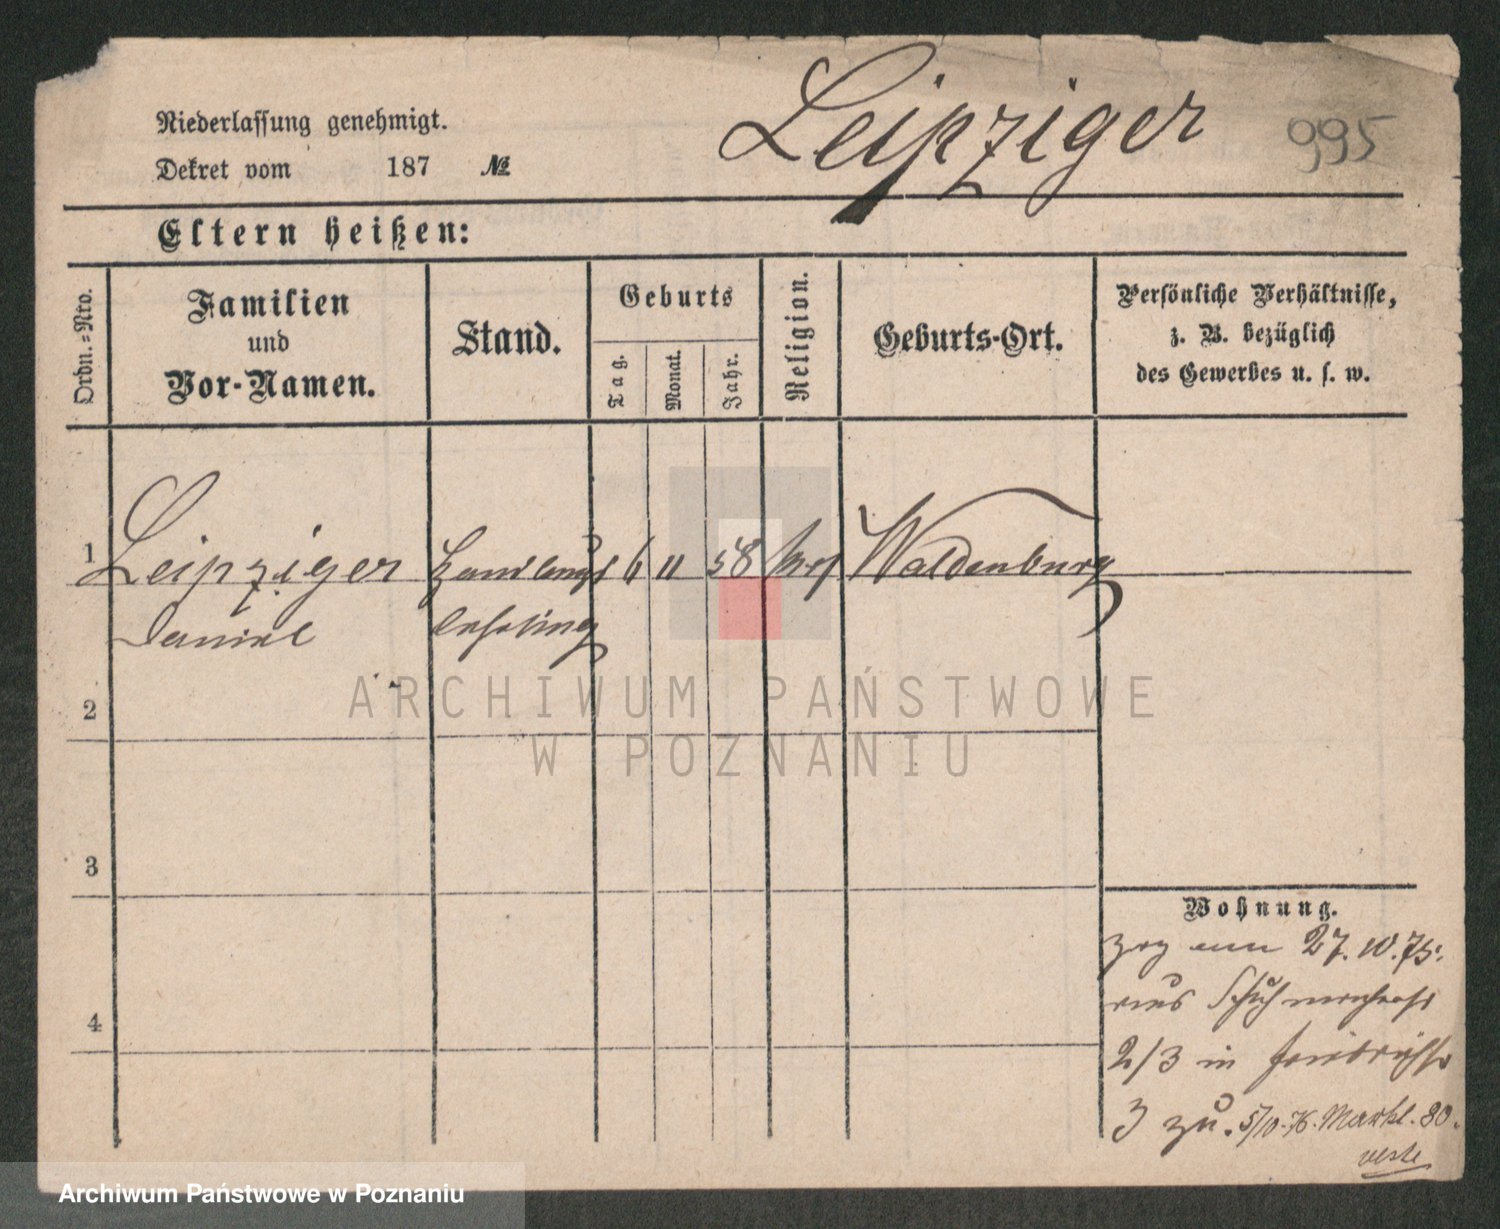 Leipziger 995
Niederlassung genehmigt.
Dekret vom 187 №
Eltern heißen:
Ordn.=Nro.
Familien
und
Vor-Namen.
Stand.
Geburts
Tag.
Monat.
Jahr.
Religion.
Geburts-Ort.
Persönliche Verhältnisse,
z. B. bezüglich
des Gewerbes u. s. w.
1 Leipziger Handlungs 6 11 58 mos Waldenburg
Daniel lehrling
2
3
4
Wohnung.
zog am 27. 10. 75.
aus
2/3 in Friedrichstr
3 zu. 5/10. 76. Markt. 80.
ARCHIWUM PAŃSTWOWE
W POZNANIU
Archiwum Państwowe w Poznaniu